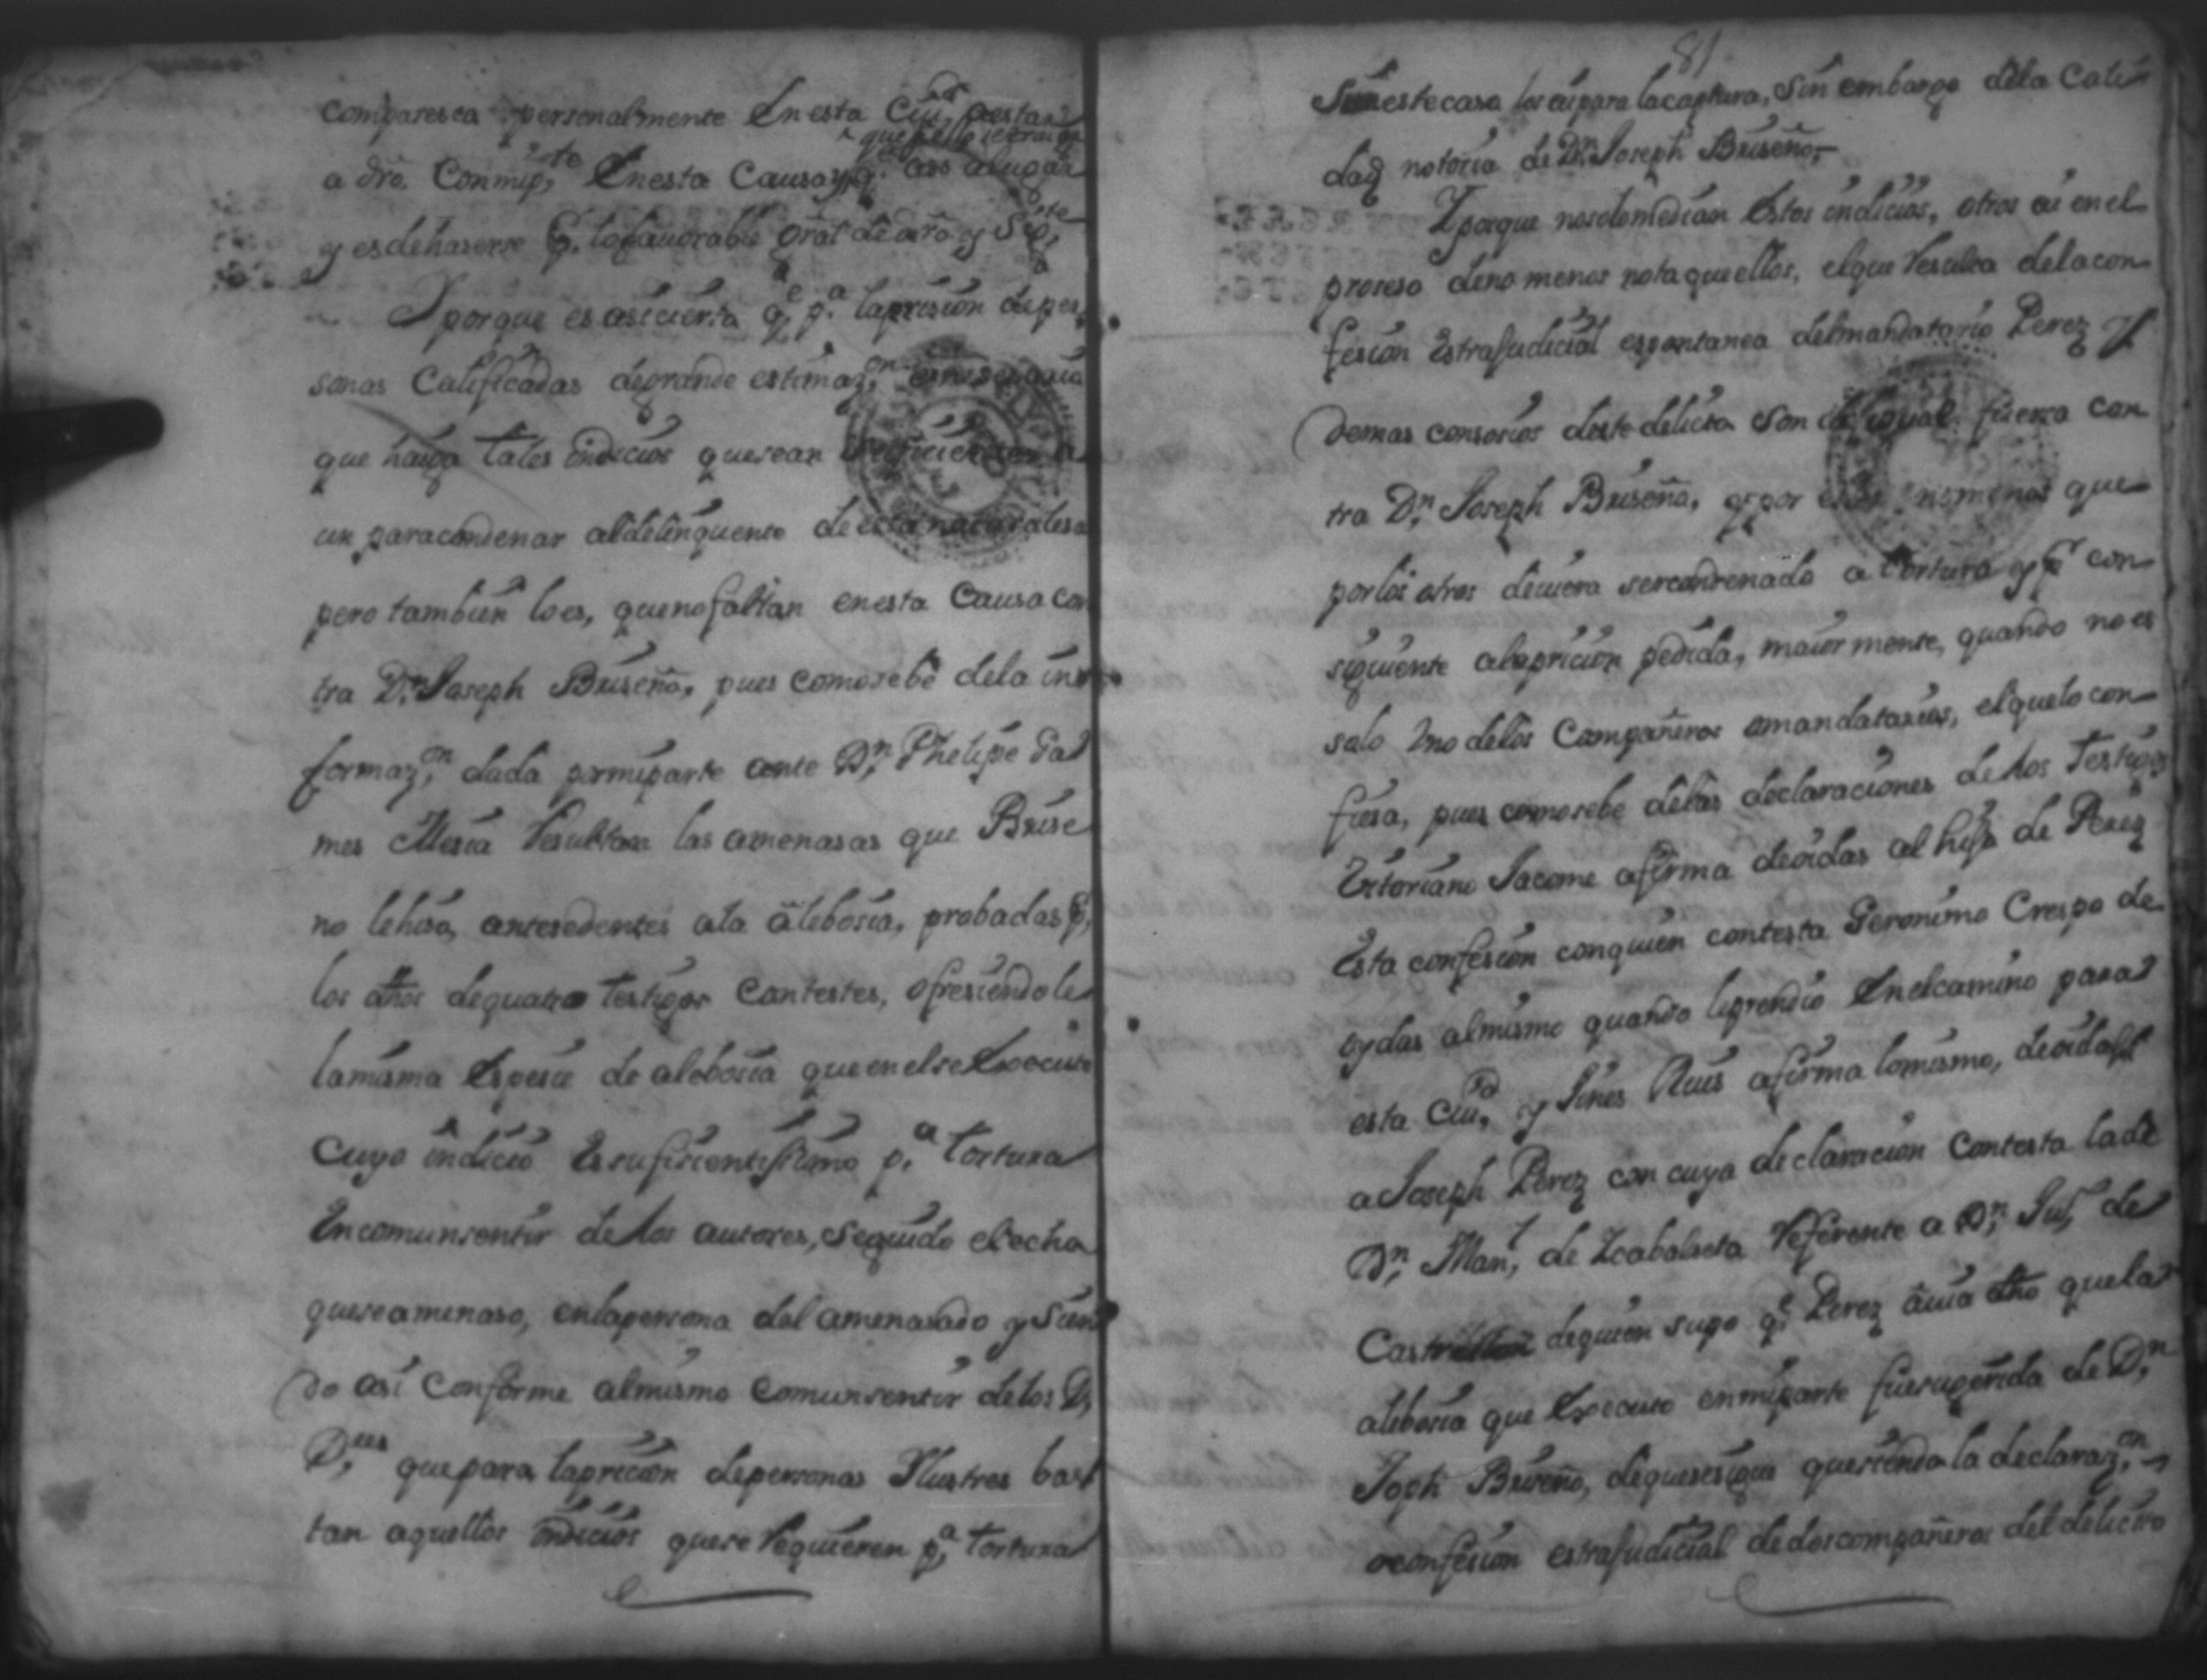 comparesca personalmente En esta Ciu.d aestar
que pello se traiga
a dro. Conmip.te Enesta Causa y q.
y es de haserse p. lo fauorable gral de dro y Sig.te
Y porque es asi cierto q.e p.a la prision de per
sonas Calificadas de grande estimaz.on es nesesario
que haiga tales indicios que sean
un para condenar al delinquente de esta naturalesa
pero tambien lo es, que no faltan en esta Causa con
tra D.n Joseph Briseño, pues como se be de la in
formaz.on dada por mi parte ante D.n Phelipe Gal
mes Mesia Resultan las amenasas que Brise
no le hiso, antesedentes ala alebosia, probadas p.
los dhos de quatro testigos Contestes, ofresiendole
la misma Espesie de alebosia que en el se Executo
Cuyo indicio Es sufisientissimo p.a tortura
En comun sentir de los autores, seguido el echo
que se amenaso, en la persona del amenasado y Sien
do asi Conforme al mismo Comun sentir de los D,
D.res que para la pricion de personas Ylustres bas
tan aquellos indicios que se Requieren p.a tortura
81
este caso los ai para la captura, Sin embargo de la Cali
dad notoria de D.n Joseph Briseño,
Y porque no solo median Estos indicios, otros ai en el
proseso de no menos nota que ellos, el que Resulta de la con
fesion Estrajudicial espontanea del mandatario Perez y
demas consosios deste delicto son de igual fuersa con
tra D.n Joseph Briseño, q. por no menos que
por los otros deuiera ser condenado a tortura y p.r con
siguiente a la pricion pedida, maior mente, quando no es
solo Uno de los Compañeros o mandatarios, el que lo con
fiesa, pues como se be de las declaraciones de los Testigos
Vitoriano Jacome afirma de oidas al hijo de Perez
Esta confesion con quien contesta Geronimo Crespo de
oydas al mismo quando le prendio En el camino para
esta Ciu.d y Gines Ruis afirma lo mismo, de oidas
a Joseph Perez con cuya declaracion Contesta la de
D.n Man.l de Zcabalaeta Referente a D.n Jul. de
de quien supo q.e Perez auia dho que la
alebosia que Executo en mi parte fue sugerida de D.n
Joph Briseño, de que se sigue que siendo la declaraz.on
o confesion estrajudicial de dos compañeros del delicto